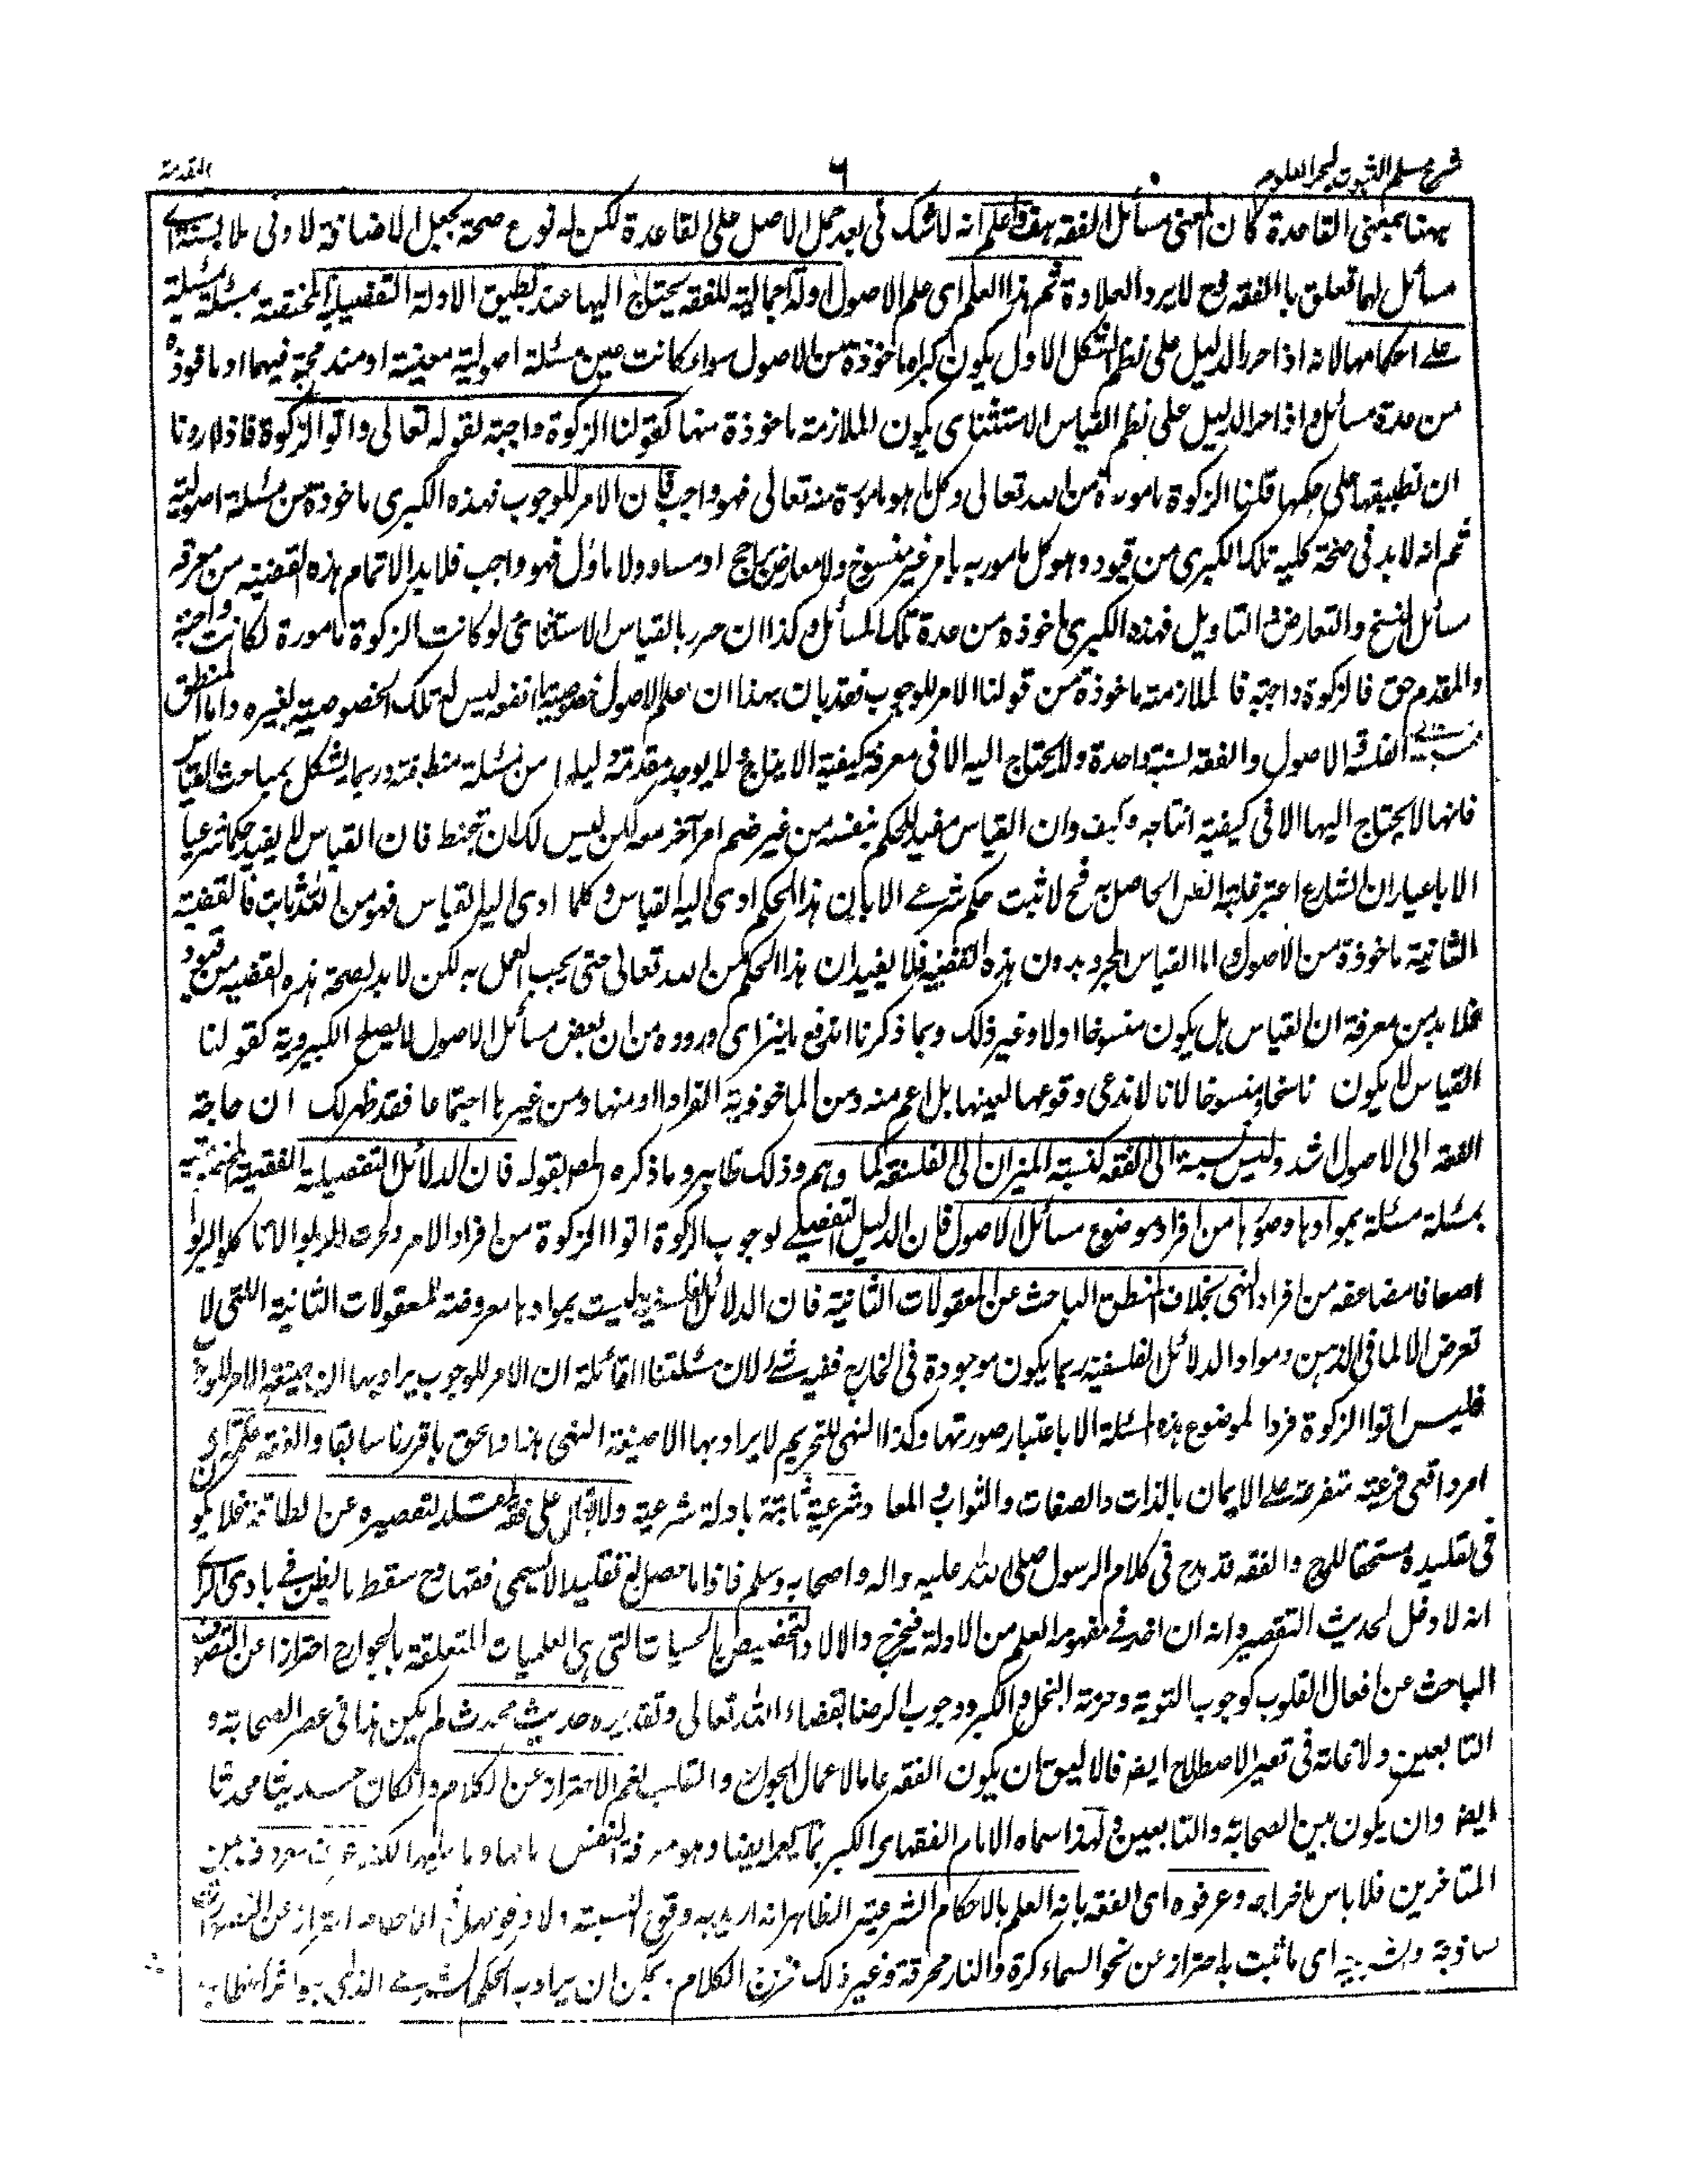 شرح مسلم الثبوت لبحر العلوم
٦
المقدمة
ههنا بمعنى القاعدة كان المعنى مسائل الفقه هف واعلم انه لا شك في بعد حمل الاصل على القاعدة لكن له نوع صحة بجعل الاضافة لادنى ملابسة اى
مسائل لها تعلق بالفقه فح لا يرد العلاوة ثم هذا العلم اى علم الاصول ادلة اجمالية للفقه يحتاج اليها عند تطبيق الادلة التفصيلية المختصة بمسئلة مسئلة
على احكامها لانه اذا حرر الدليل على نظم الشكل الاول يكون كبراه ماخوذة من الاصول سواء كانت عين مسئلة اصولية معينة او مندمجة فيها او ماخوذة
من عدة مسائل واذا حرر الدليل على نظم القياس الاستثنائى يكون الملازمة ماخوذة منها كقولنا الزكوة واجبة لقوله تعالى واتوا الزكوة فاذا اردنا
ان نطبيقها على حكمها قلنا الزكوة مامورة من الله تعالى وكل ما هو مامورة منه تعالى فهو واجب فان الامر للوجوب فهذه الكبرى ماخوذة من مسئلة اصولية
ثم انه لا بد فى صحة كلية تلك الكبرى من قيود وهو كل مامور به بامر غير منسوخ ولا معارض براجح او مساو ولا ماؤل فهو واجب فلا بد لاتمام هذه القضية من معرفة
مسائل النسخ والتعارض والتاويل فهذه الكبرى ماخوذه من عدة تلك المسائل وكذا ان حرر بالقياس الاستثنائى لو كانت الزكوة مامورة لكانت واجبة
والمقدم حق فالزكوة واجبة فالملازمة ماخوذة من قولنا الامر للوجوب فقد بان بهذا ان علم الاصول خصوصية بالفقه ليس له تلك الخصوصية لغيره واما المنطق
الفلسفة الاصول والفقه نسبة واحدة ولا يحتاج اليه الا فى معرفة كيفية الانتاج لا يوجد مقدمة دليلها من مسئلة منطقية وربما يشكل بمباحث القياس
فانها لا يحتاج اليها الا فى كيفية انتاجه وكيف وان القياس مفيد للحكم بنفسه من غير ضم امر آخر معه لكن ليس لك ان تخبط فان القياس لا يفيد حكما شرعيا
الا باعتبار ان الشارع اعتبر غلبة الظن الحاصل به فح لا يثبت حكم شرعى الا بان هذا الحكم ادى اليه القياس وكلما ادى اليه القياس فهو من الله ثابت فالقضية
الثانية ماخوذة من الاصول واما القياس المجرد بدون هذه القضية فلا يفيد ان هذا الحكم من الله تعالى حتى يجب العمل به لكن لا بد لصحة هذه القضيه من قيود
فلا بد من معرفة ان القياس هل يكون منسوخا اولا وغير ذلك وبما ذكرنا اندفع ما يتراى وروده من ان بعض مسائل الاصول لا يصلح الكبروية كقولنا
القياس لا يكون ناسخا ومنسوخا لانا لا ندعى وقوعها بعينها بل اعم منه ومن الماخوذية انفرادا او منها ومن غيرها اجتماعا فقد ظهر لك ان حاجة
الفقه الى الاصول اشد وليس نسبته الى الفقه كنسبة الميزان الى الفلسفة كما وهم وذلك ظاهر وما ذكره المصـ بقوله فان الدلائل التفصيلية الفقهية المختصة
بمسئلة مسئلة بموادها وصورها من افراد موضوع مسائل الاصول فان الدليل التفصيلى لوجوب الزكوة اتوا الزكوة من افراد الامر ولحرمة الربوا لا تاكلوا الربوا
اضعافا مضاعفة من افراد النهى بخلاف المنطق الباحث عن المعقولات الثانية فان الدلائل الفلسفية ليست بموادها معروضة للمعقولات الثانية اللتى لا
تعرض الا لما فى الذهن ومواد الدلائل الفلسفية ربما يكون موجودة فى الخارج ففيه شى لان مسئلتنا القائلة ان الامر للوجوب يراد بها ان صيغة الامر للوجوب
فليس اتوا الزكوة فردا لموضوع هذه المسئلة الا باعتبار صورتها وكذا النهى للتحريم لا يراد بها الا صيغة النهى هذا والحق ما قررنا سابقا والفقه حكمة اى
امر واقعى فرعية متفرعة على الايمان بالذات والصفات والثواب والمعاد شرعية ثابتة بادلة شرعية ولا يقال على فقه المقلد لتقصيره عن الطاقة فلا يكون
فى تقليده مستحقا للمدح والفقه قد مدح فى كلام الرسول صلى الله عليه واله واصحابه وسلم فاذا ما حصل له تقليدا لا يسمى فقها وح سقط ما يظن فى بادى الراى
انه لا دخل لحديث التقصير وانه ان اخذ فى مفهومه العلم من الادلة فيخرج والا لا والتخصيص بالحسيات التى هى العلميات المتعلقة بالجوارح احترازا عن التصوف
الباحث عن افعال القلوب كوجوب التوبة وحرمة البخل والكبر ووجوب الرضا بقضاء الله تعالى وتقديره حديث محدث لم يكن هذا فى عصر الصحابة و
التابعين ولا مشاحة فى تغيير الاصطلاح ايضـ فالاليق ان يكون الفقه عاما لاعمال الجوارح والقلب نعم الاحتراز عن الكلام وان كان حديثا محدثا
ايضـ وان يكون بين الصحابة والتابعين ولهذا سماه الامام الفقه الاكبر ... وهو معرفة النفس ما لها وما عليها لكنه عرف معروف بين
المتاخرين فلا باس باخراجه وعرفوه اى الفقه بانه العلم بالاحكام الشرعية الظاهر انه اريد به وقوع النسبة ولا وقوعها
ساذجة والشرعية اى ما ثبت به احتراز عن نحو السماء كرة والنار محرقة وغير ذلك من الكلام ويمكن ان يراد به الحكم الشرعى الذى هو اثر الخطاب